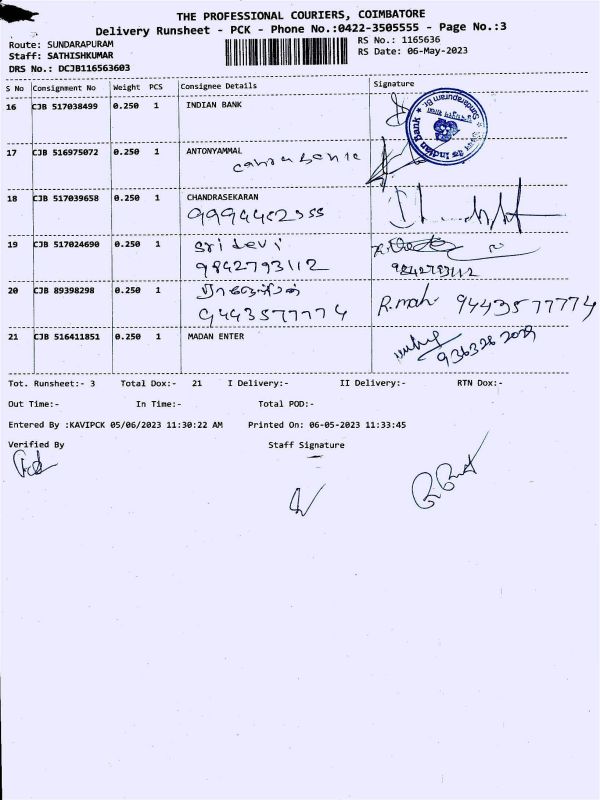 THE PROFESSIONAL COURIERS, COIMBATORE
Delivery Runsheet - PCK - Phone No.:0422-3505555 - Page No.:3
Route: SUNDARAPURAM
RS No.: 1165636
Staff: SATHISHKUMAR
RS Date: 06-May-2023
DRS No.: DCJB116563603
S No Consignment No Weight PCS Consignee Details Signature
16 CJB 517038499 0.250 1 INDIAN BANK
Indian Bank ★ Sundarapuram Br. ★
17 CJB 516975072 0.250 1 ANTONYAMMAL
18 CJB 517039658 0.250 1 CHANDRASEKARAN
19 CJB 517024690 0.250 1 Sri devi
9842793112 9842793112
20 CJB 89398298 0.250 1
9443577774 R.mah 9443577774
21 CJB 516411851 0.250 1 MADAN ENTER
Tot. Runsheet:- 3 Total Dox:- 21 I Delivery:- II Delivery:- RTN Dox:-
Out Time:- In Time:- Total POD:-
Entered By :KAVIPCK 05/06/2023 11:30:22 AM Printed On: 06-05-2023 11:33:45
Verified By Staff Signature